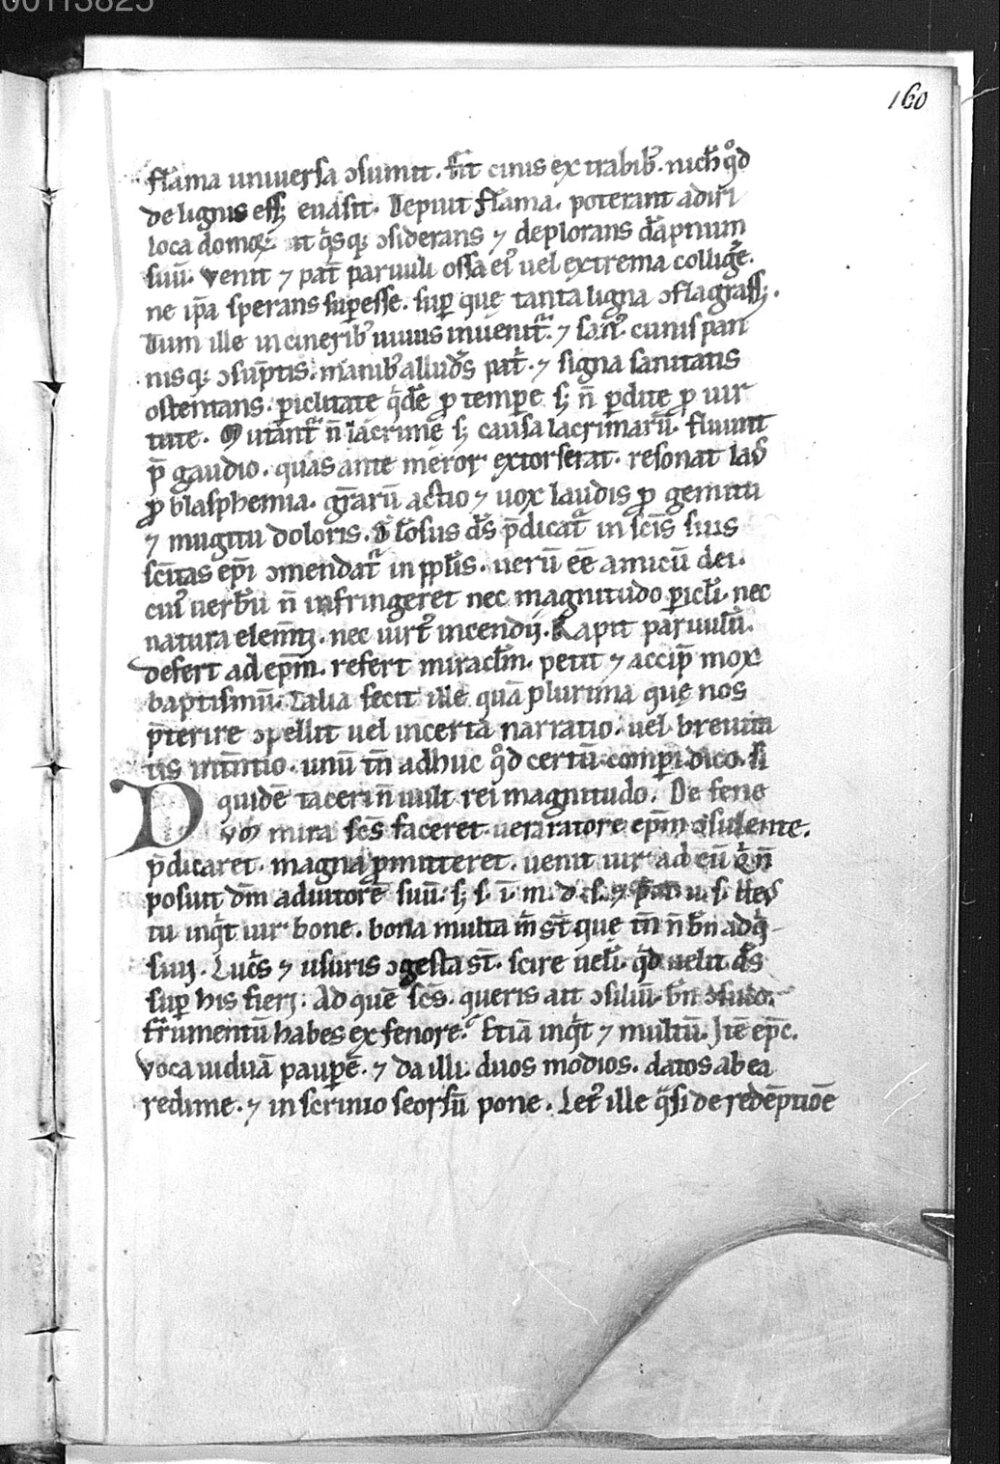 00113825
160
flāma uniuersa ↄsumit. fit cinis ex trabib᷒. nich̄ qͦd
de lignis eſſꝫ euasit. Depiut flāma. poterant adiri
loca domoꝝ it q̇sqꝫ ↄsiderans ⁊ deplorans dāpnum
suū. venit ⁊ pat̄ paruuli ossa ei᷒ uel extrema collig̃e.
ne ip̄a sperans sup̱esse. sup̱ quę tanta ligna ↄflagraſſꝫ.
Dum ille in cinerib᷒ uiuus inuenit᷑. ⁊ san᷒ cunis pan
nisqꝫ ↄsūptis. manib᷒ alludēs pat̄i. ⁊ signa sanitatis
ostentans. p̱iclitate q̇dē ꝓ tempe sꝫ n̄ p̱dite ꝓ uir
tute. Mutant᷑ n̄ lacrime sꝫ causa lacrimarū. fluunt
p̄ gaudio. quas ante meror extorserat. resonat laus
ꝓ blasphemia. gr̄arū actio ⁊ uox laudis ꝓ gemitu
⁊ mugitu doloris. gl̄osus d̄s p̄dicat᷑ in sc̄is suis
sc̄itas ep̄i ↄmendat᷑ in pp̄lis. uerū eē amicū dei.
cui᷒ uerbū n̄ infringeret nec magnitudo p̱icl̄i. nec
natura elem̄ti. nec uirt᷒ incendij. Rapit paruulū.
defert ad ep̄m. refert miracl̄m. petit ⁊ accip̄ mox
baptismū. Talia fecit ille quā plurima quę nos
p̄terire ↄpellit uel incerta narratio. uel breuita
tis int̄ntio. unū tn̄ adhuc qͦd certū comp̱i dico. si
quidē taceri n̄ uult rei magnitudo. De fene
Dvm mira sc̄s faceret ratore ep̄m ↄsulente.
p̄dicaret. magna ꝓmitteret. uenit uir ad eū q̇ n̄
posuit dm̄ adiutorē suū. sꝫ s. ī. m. d. s.
tu inq̇t uir bone. bona multa m̄ st̄ que tn̄ n̄ bn̄ adq̇
siui. Luc̄s ⁊ usuris ↄgesta st̄. scire uelī. q̇d uelit d̄s
sup̱ his fieri. Ad quē sc̄s. queris ait ↄsiliū. bn̄ ↄsulo.
frumentū habes ex fenore? Etiā inq̇t ⁊ multū. Itē ep̄c.
voca uiduā paup̱ē. ⁊ da illi duos modios. datos ab ea
redime. ⁊ in scrinio seorsū pone. Let᷒ ille q̇si de redēptiōe